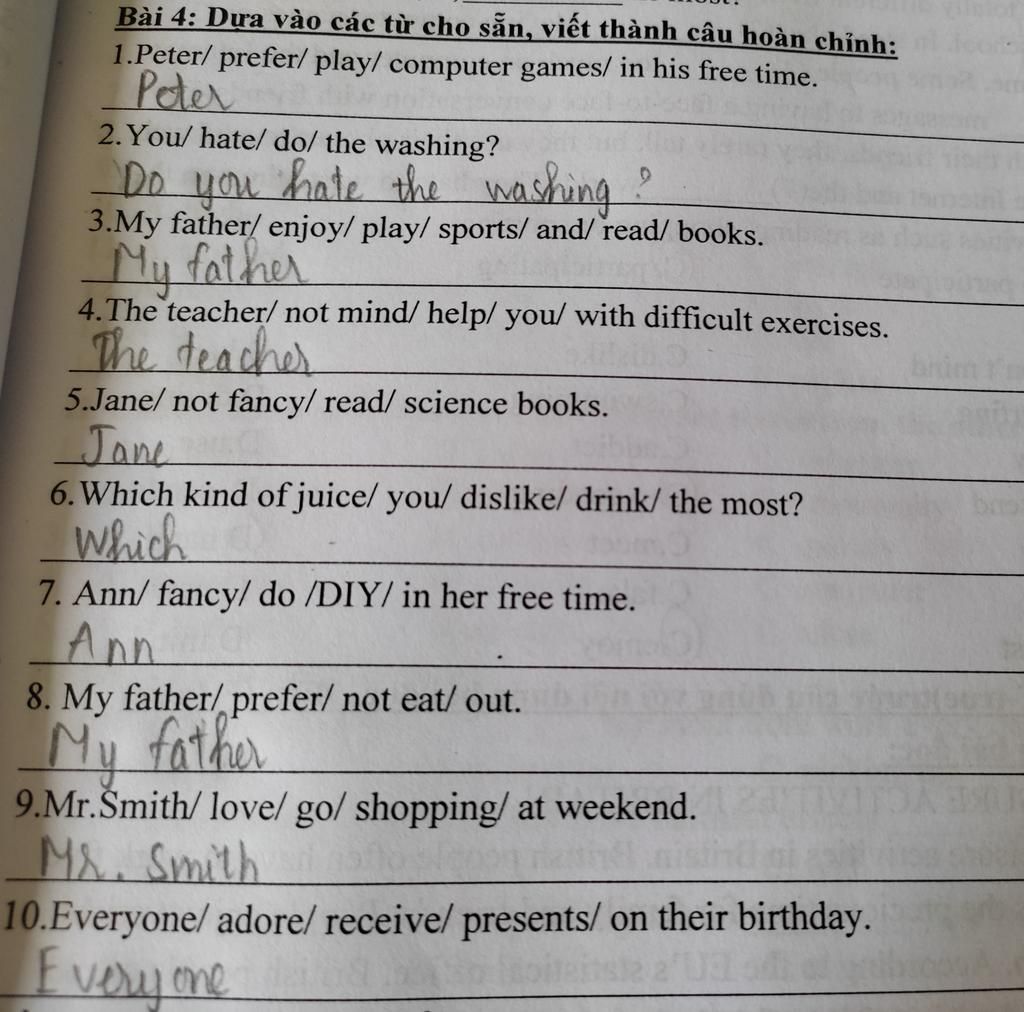 Bài 4: Dựa vào các từ cho sẵn, viết thành câu hoàn chỉnh:
1.Peter/ prefer/ play/ computer games/ in his free time.
Peter
2.You/ hate/ do/ the washing?
Do you hate the washing?
3.My father/ enjoy/ play/ sports/ and/ read/ books.
My father
4.The teacher/ not mind/ help/ you/ with difficult exercises.
The teacher
5.Jane/ not fancy/ read/ science books.
Jane
6.Which kind of juice/ you/ dislike/ drink/ the most?
Which
7. Ann/ fancy/ do /DIY/ in her free time.
Ann
8. My father/ prefer/ not eat/ out.
My father
9.Mr.Smith/ love/ go/ shopping/ at weekend.
Mr. Smith
10.Everyone/ adore/ receive/ presents/ on their birthday.
Everyone